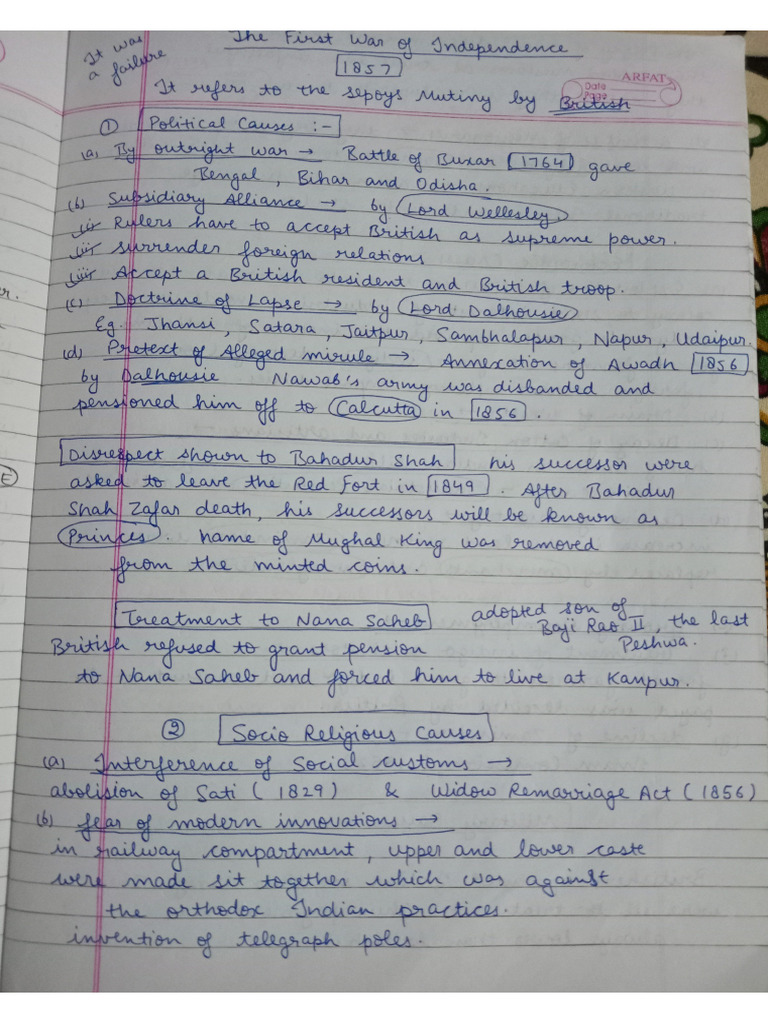 It was
a failure
The First War of Independence
1857
ARFAT
Date
Page
It refers to the sepoys Mutiny by British
① Political Causes :-
(a) By outright war → Battle of Buxar 1764 gave
Bengal, Bihar and Odisha.
(b) Subsidiary Alliance → by Lord Wellesley.
(i) Rulers have to accept British as supreme power.
(ii) surrender foreign relations
(iii) Accept a British resident and British troop.
(c) Doctrine of Lapse → by Lord Dalhousie
Eg. Jhansi, Satara, Jaitpur, Sambhalapur, Napur, Udaipur.
(d) Pretext of Alleged mirule → Annexation of Awadh 1856
by Dalhousie Nawab's army was disbanded and
pensioned him off to Calcutta in 1856.
Disrespect shown to Bahadur Shah his successor were
asked to leave the Red Fort in 1849. After Bahadur
Shah Zafar death, his successors will be known as
Princes. name of Mughal King was removed
from the minted coins.
Treatment to Nana Saheb adopted son of
Baji Rao II, the last
Peshwa.
British refused to grant pension
to Nana Saheb and forced him to live at Kanpur.
② Socio Religious Causes
(a) Interference of Social customs →
abolision of Sati (1829) & Widow Remarriage Act (1856)
(b) fear of modern innovations →
in railway compartment, upper and lower caste
were made sit together which was against
the orthodox Indian practices.
invention of telegraph poles.